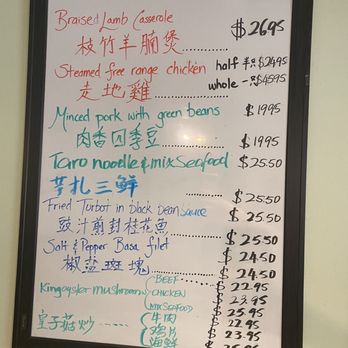 Braised Lamb Casserole $26.95
枝竹羊腩煲
Steamed free range chicken half 半只$24.95
走地雞 whole 一只$45.95
Minced pork with green beans $19.95
肉香四季豆 $19.95
Taro noodle & mix Seafood $25.50
芋扎三鮮 $25.50
Fried Turbot in black bean sauce $25.50
豉汁煎封桂花魚 $25.50
Salt & Pepper Basa filet $24.50
椒盐斑塊 $24.50
King oyster mushroom BEEF 22.95
CHICKEN 23.95
MIX SEAFOOD $25.95
皇子菇炒 ----- 牛肉 22.95
鸡片 23.95
海鲜 25.95